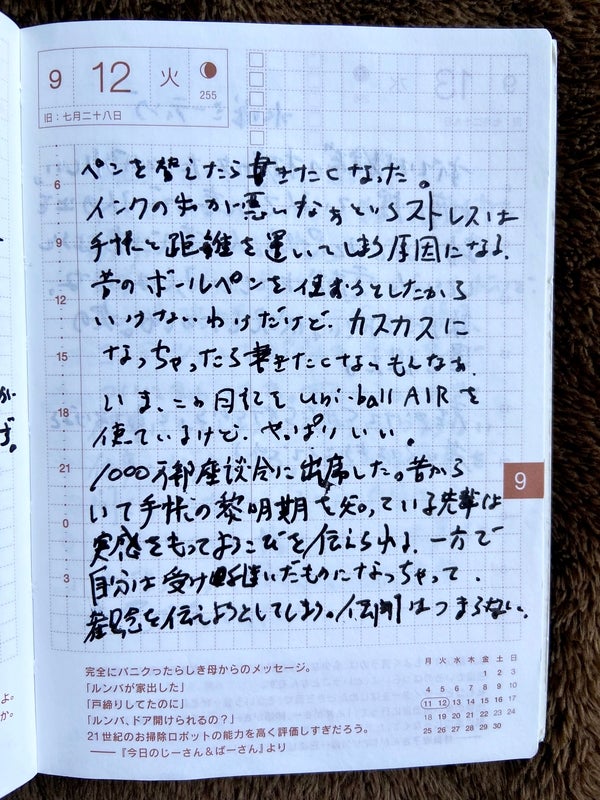 9 12 火
255
旧：七月二十八日
ペンを替えたら書きたくなった。
インクの出が悪いなぁというストレスは
手帳と距離を置いてしまう原因になる。
昔のボールペンを使おうとしたから
いけないわけだけど、カスカスに
なっちゃったら書きたくないもんなぁ。
いま、この日記を uni-ball AIR を
使ているけど、やっぱりいい。
1000万部座談会に出席した。昔から
いて手帳の黎明期を知っている先輩は
実感をもってよろこびを伝えられる。一方で
自分は受け継いだものになっちゃって、
を伝えようとしてしまう。伝聞はつまらない。
6
9
12
15
18
21
0
3
9
完全にパニクったらしき母からのメッセージ。
「ルンバが家出した」
「戸締りしてたのに」
「ルンバ、ドア開けられるの？」
21世紀のお掃除ロボットの能力を高く評価しすぎだろう。
──『今日のじーさん＆ばーさん』より
月 火 水 木 金 土 日
1 2 3
4 5 6 7 8 9 10
11 12 13 14 15 16 17
18 19 20 21 22 23 24
25 26 27 28 29 30